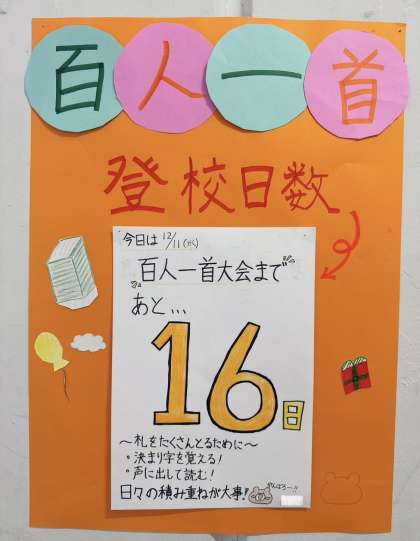 百人一首
登校日数
今日は 12/11(水)
百人一首大会まで
あと...
16日
～札をたくさんとるために～
・決まり字を覚える!
・声に出して読む!
日々の積み重ねが大事!
がんばろー!!